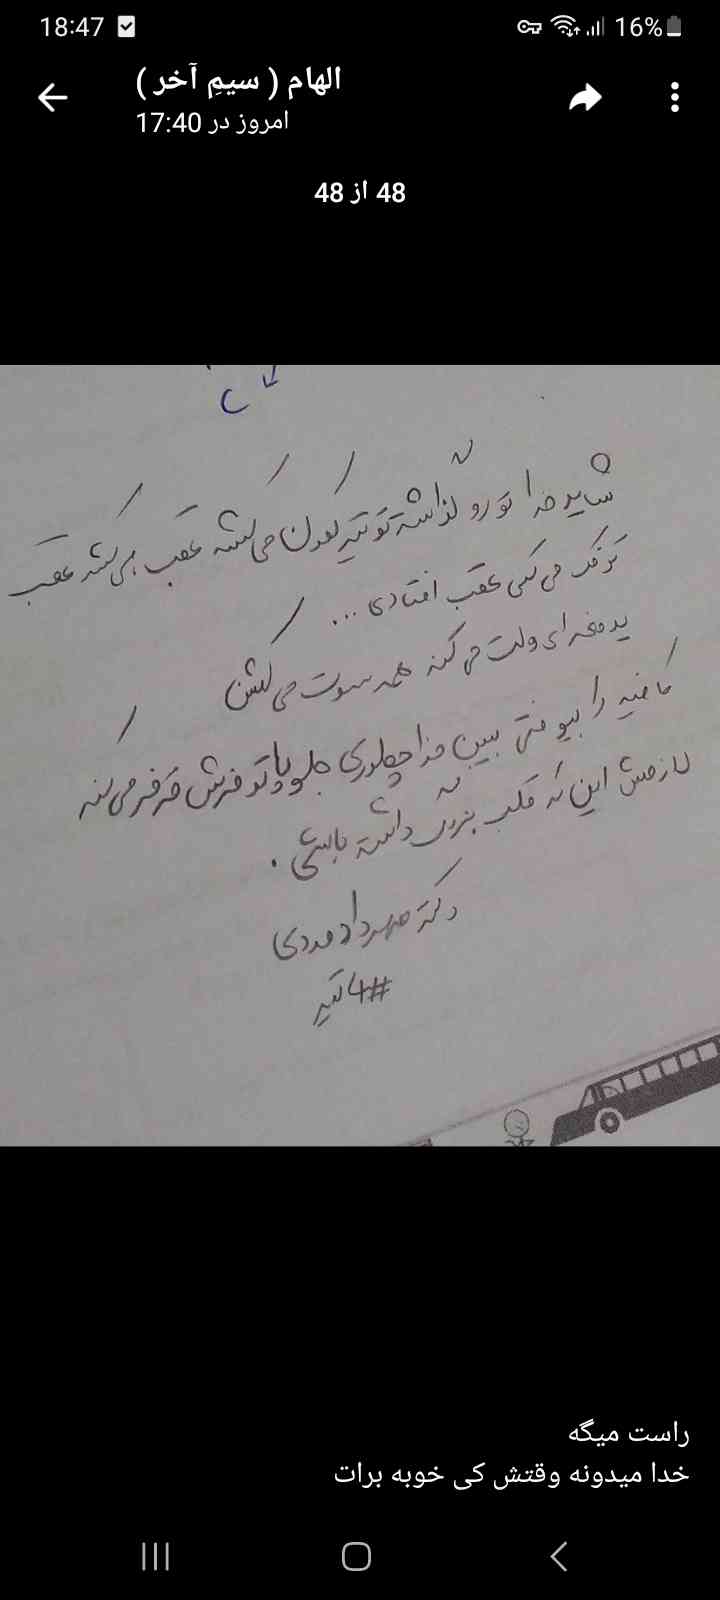 18:47
16%
الهام ( سیمِ آخر )
امروز در 17:40
48 از 48
شاید خدا تو رو گذاشته تو تیر کمون می کشه عقب هی می کشه عقب
تو فک می کنی عقب افتادی ...
یه دفعه ای ولت می کنه همه سوت می کشن
کافیه را بیوفتی ببین خدا چطوری جلو پاتو فرش قرمز می کنه
لازمش این که قلب بزرگ داشته باشی .
دکتر مهرداد مددی
#4تیر
راست میگه
خدا میدونه وقتش کی خوبه برات